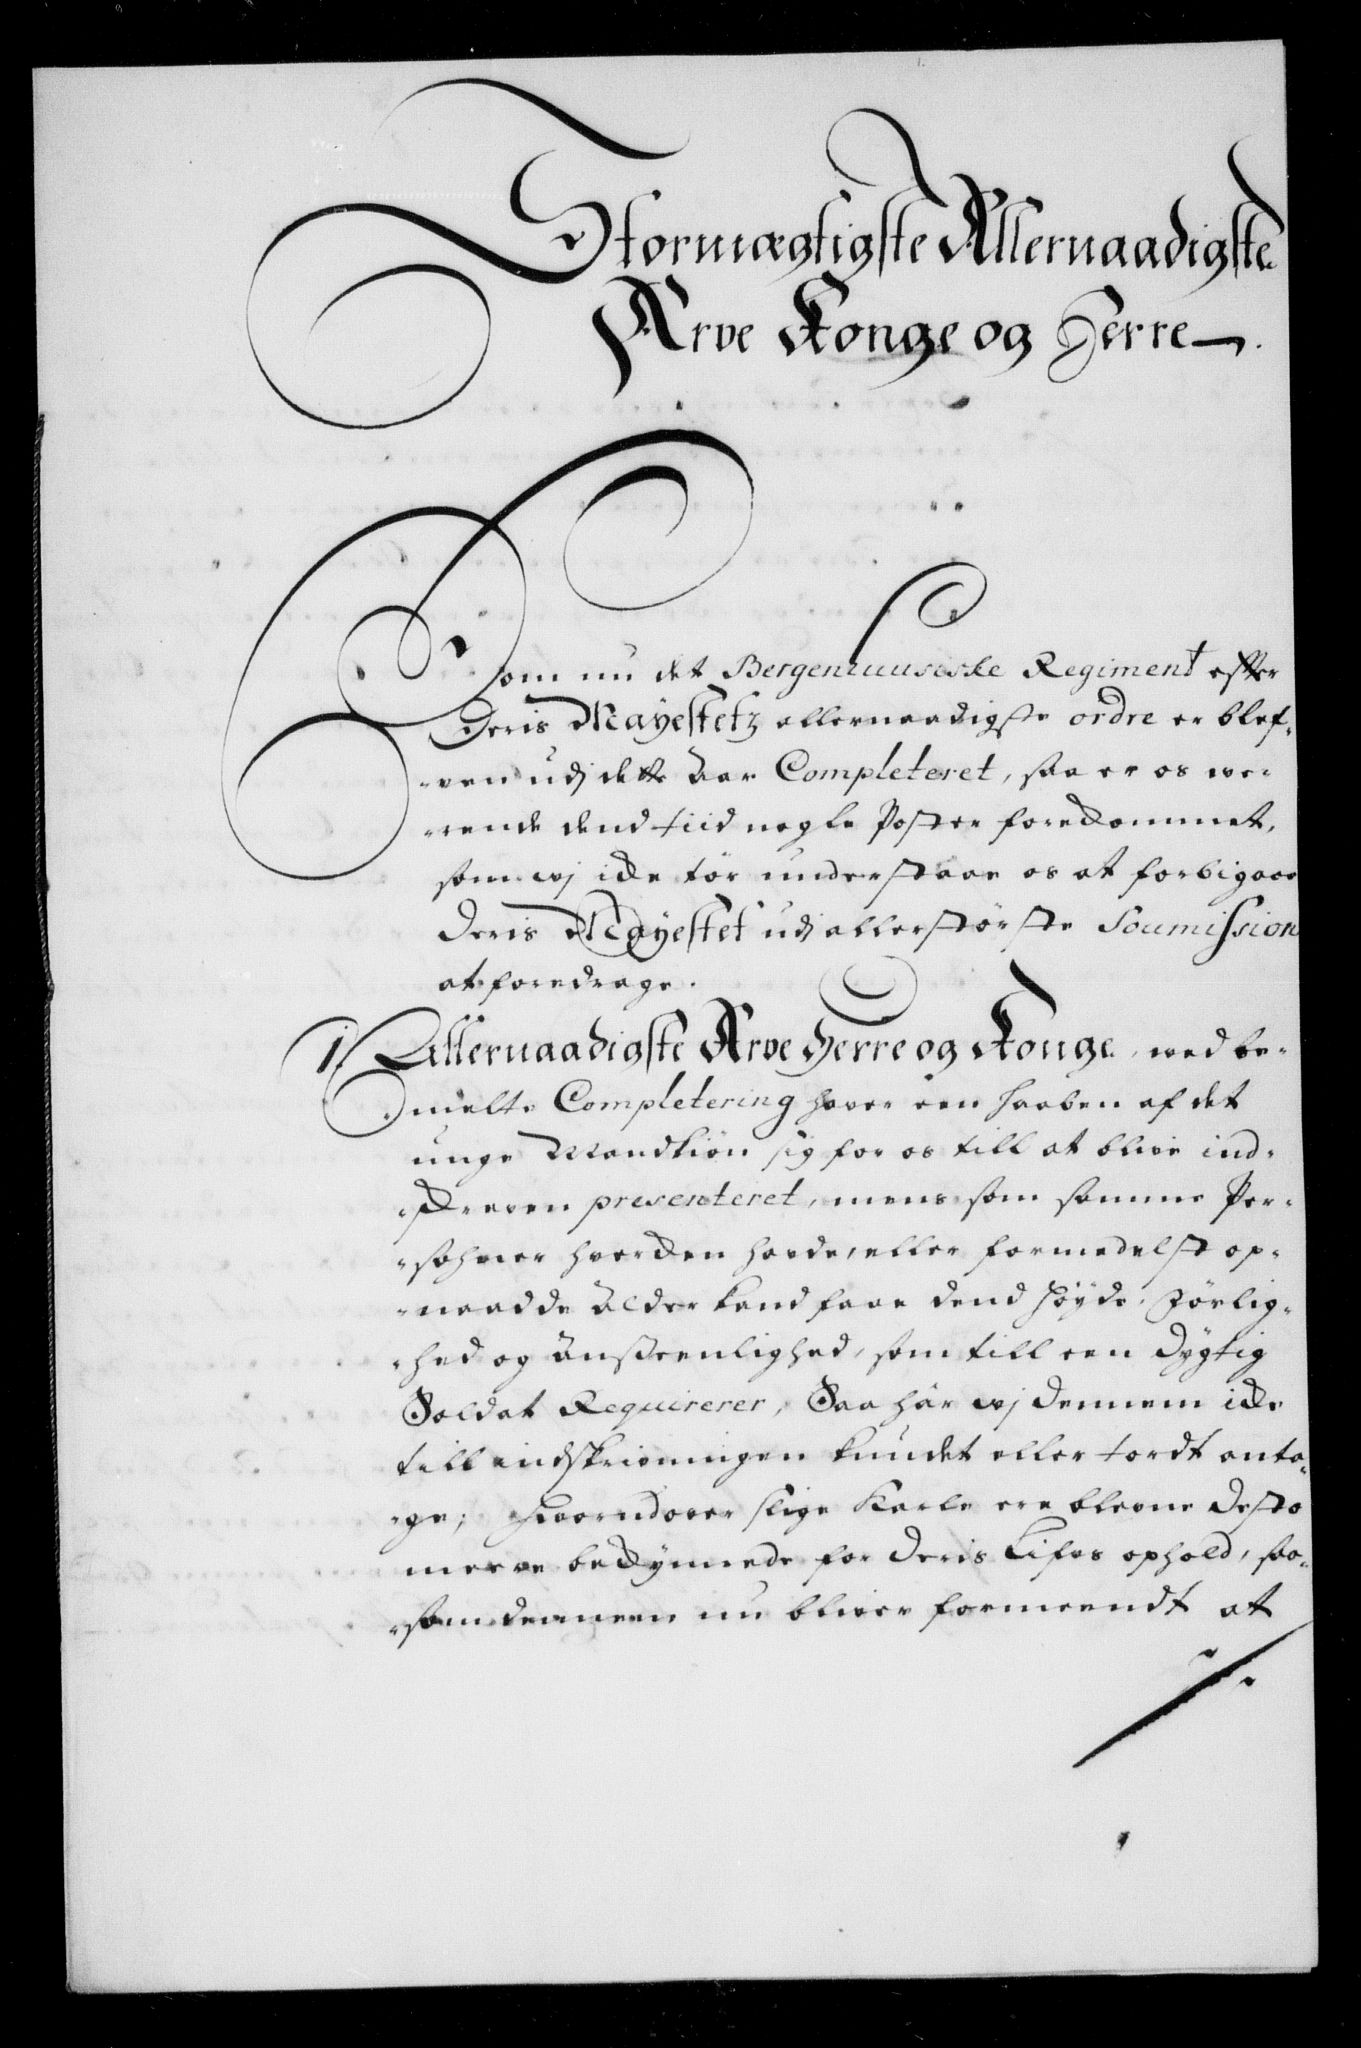 Stormægtigste Allernaadigste
Arve Konge og Herre
Som nu det Bergenhuusiske Regiment efter
Deris Mayestetz allernaadigste ordre er blef-
-ven udj dette Aar Completeret, saa er os we-
-rende dend tiid nogle Poster forekommet,
som wj icke tør understaae os at forbigaae
Deris Mayestet udj allerstørste Soumission
at foredrage.
1. Allernaadigste Arve Herre og Konge, ved be-
melte Completering haver een haaben af det
unge Mandkiøn sig for os till at blive ind-
-skreven presenteret, mens som samme Per-
-sohner hverken hafde, eller formedelst op-
-naadde Alder kand faae dend Høyde, Førlig-
-hed og Anseenlighed, som till een dygtig
Soldat Requirerer, Saa har wj dennem icke
till indskrivningen kundet eller tordt anta-
-ge; Hvorudover slige Karle ere blevne desto
meere bekymrede for deris Lifes ophold, saa-
-som dennem nu bliver formeendt at